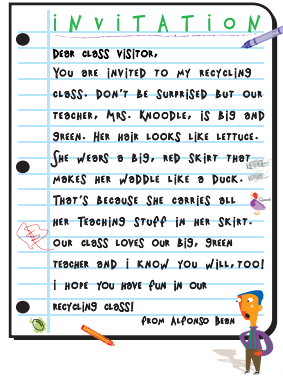 INVITATION
DEAR CLASS VISITOR,
YOU ARE INVITED TO MY RECYCLING
CLASS. DON'T BE SURPRISED BUT OUR
TEACHER, MRS. KNOODLE, IS BIG AND
GREEN. HER HAIR LOOKS LIKE LETTUCE.
SHE WEARS A BIG, RED SKIRT THAT
MAKES HER WADDLE LIKE A DUCK.
THAT'S BECAUSE SHE CARRIES ALL
HER TEACHING STUFF IN HER SKIRT.
OUR CLASS LOVES OUR BIG, GREEN
TEACHER AND I KNOW YOU WILL, TOO!
I HOPE YOU HAVE FUN IN OUR
RECYCLING CLASS!
FROM ALFONSO BEAN